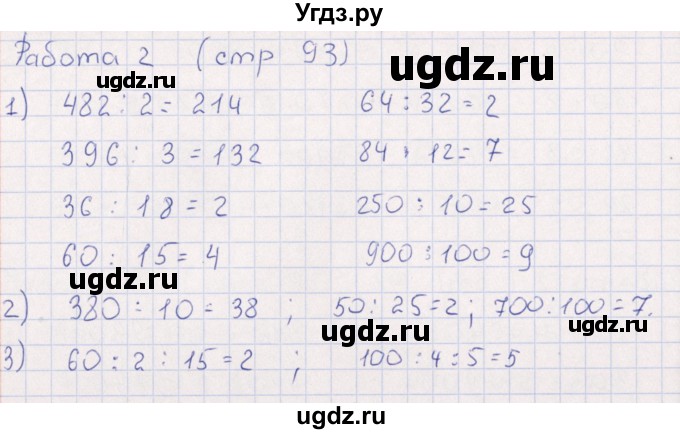 Угдз.ру
Работа 2 (стр 93)
ugdz.ru
ugdz.ru
1) 482 : 2 = 214 64 : 32 = 2
396 : 3 = 132 84 : 12 = 7
ugdz.ru
36 : 18 = 2 250 : 10 = 25
60 : 15 = 4 900 : 100 = 9
ugdz.ru
2) 380 : 10 = 38 ; 50 : 25 = 2 ; 700 : 100 = 7.
ugdz.ru
3) 60 : 2 : 15 = 2 ; 100 : 4 : 5 = 5
ugdz.ru